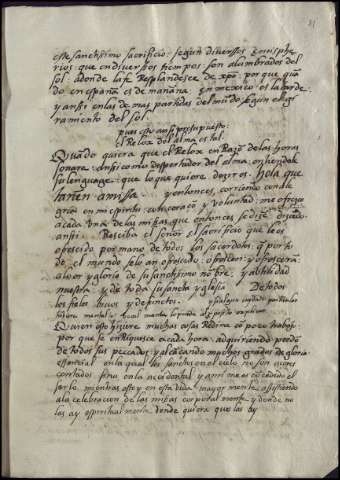 este sanctissimo sacrificio segun diversos
que en diversos tiempos son alumbrados del
sol. adonde la fe Resplandesce de xpo. por que quã
do en españa es de mañana en mexico es la tarde
y anssi en las de mas partidas del mũdo segun el gi
ramiento del sol.
pues esto ansi presupuesto.
el Relox del alma es tal.
Quãdo quiera que el Relox en Razõ de las horas
sonare ansi como despertador del alma
su lenguage que lo que quiere deziros. Hola que
tañen a missa. y entonces, corriendo con ale
gria en mi espiritu coraçõ y voluntad me ofrezco
a cada una de las missas que entonces se dizẽ diziẽdo
anssi. Resciba el señor el sacrificio que le es
ofrescido por mano de todos los sacerdotes q̃ por to
do el mundo se lo an ofrescido ofrescen y ofresceran
a loor y gloria de su sanctissimo nõbre y a utilidad
nuestra y de toda su sancta yglesia De todos
los fieles bivos y defunctos.
Quien esto hiziere muchas cosas Redime cõ poco trabajo
por que se enRiquesce a cada hora adquiriendo perdõ
de todos sus peccados y alcançando muchos grados de gloria
essencial en la qual los sanctos en el cielo no son acres
centados sino en la accidental y a mi me es concedido el
serlo mientras estoy en esta vida mayor mente assistiendo
a la celebracion de las missas corporal mente y donde no
las ay espiritual mente donde quiera que las ay